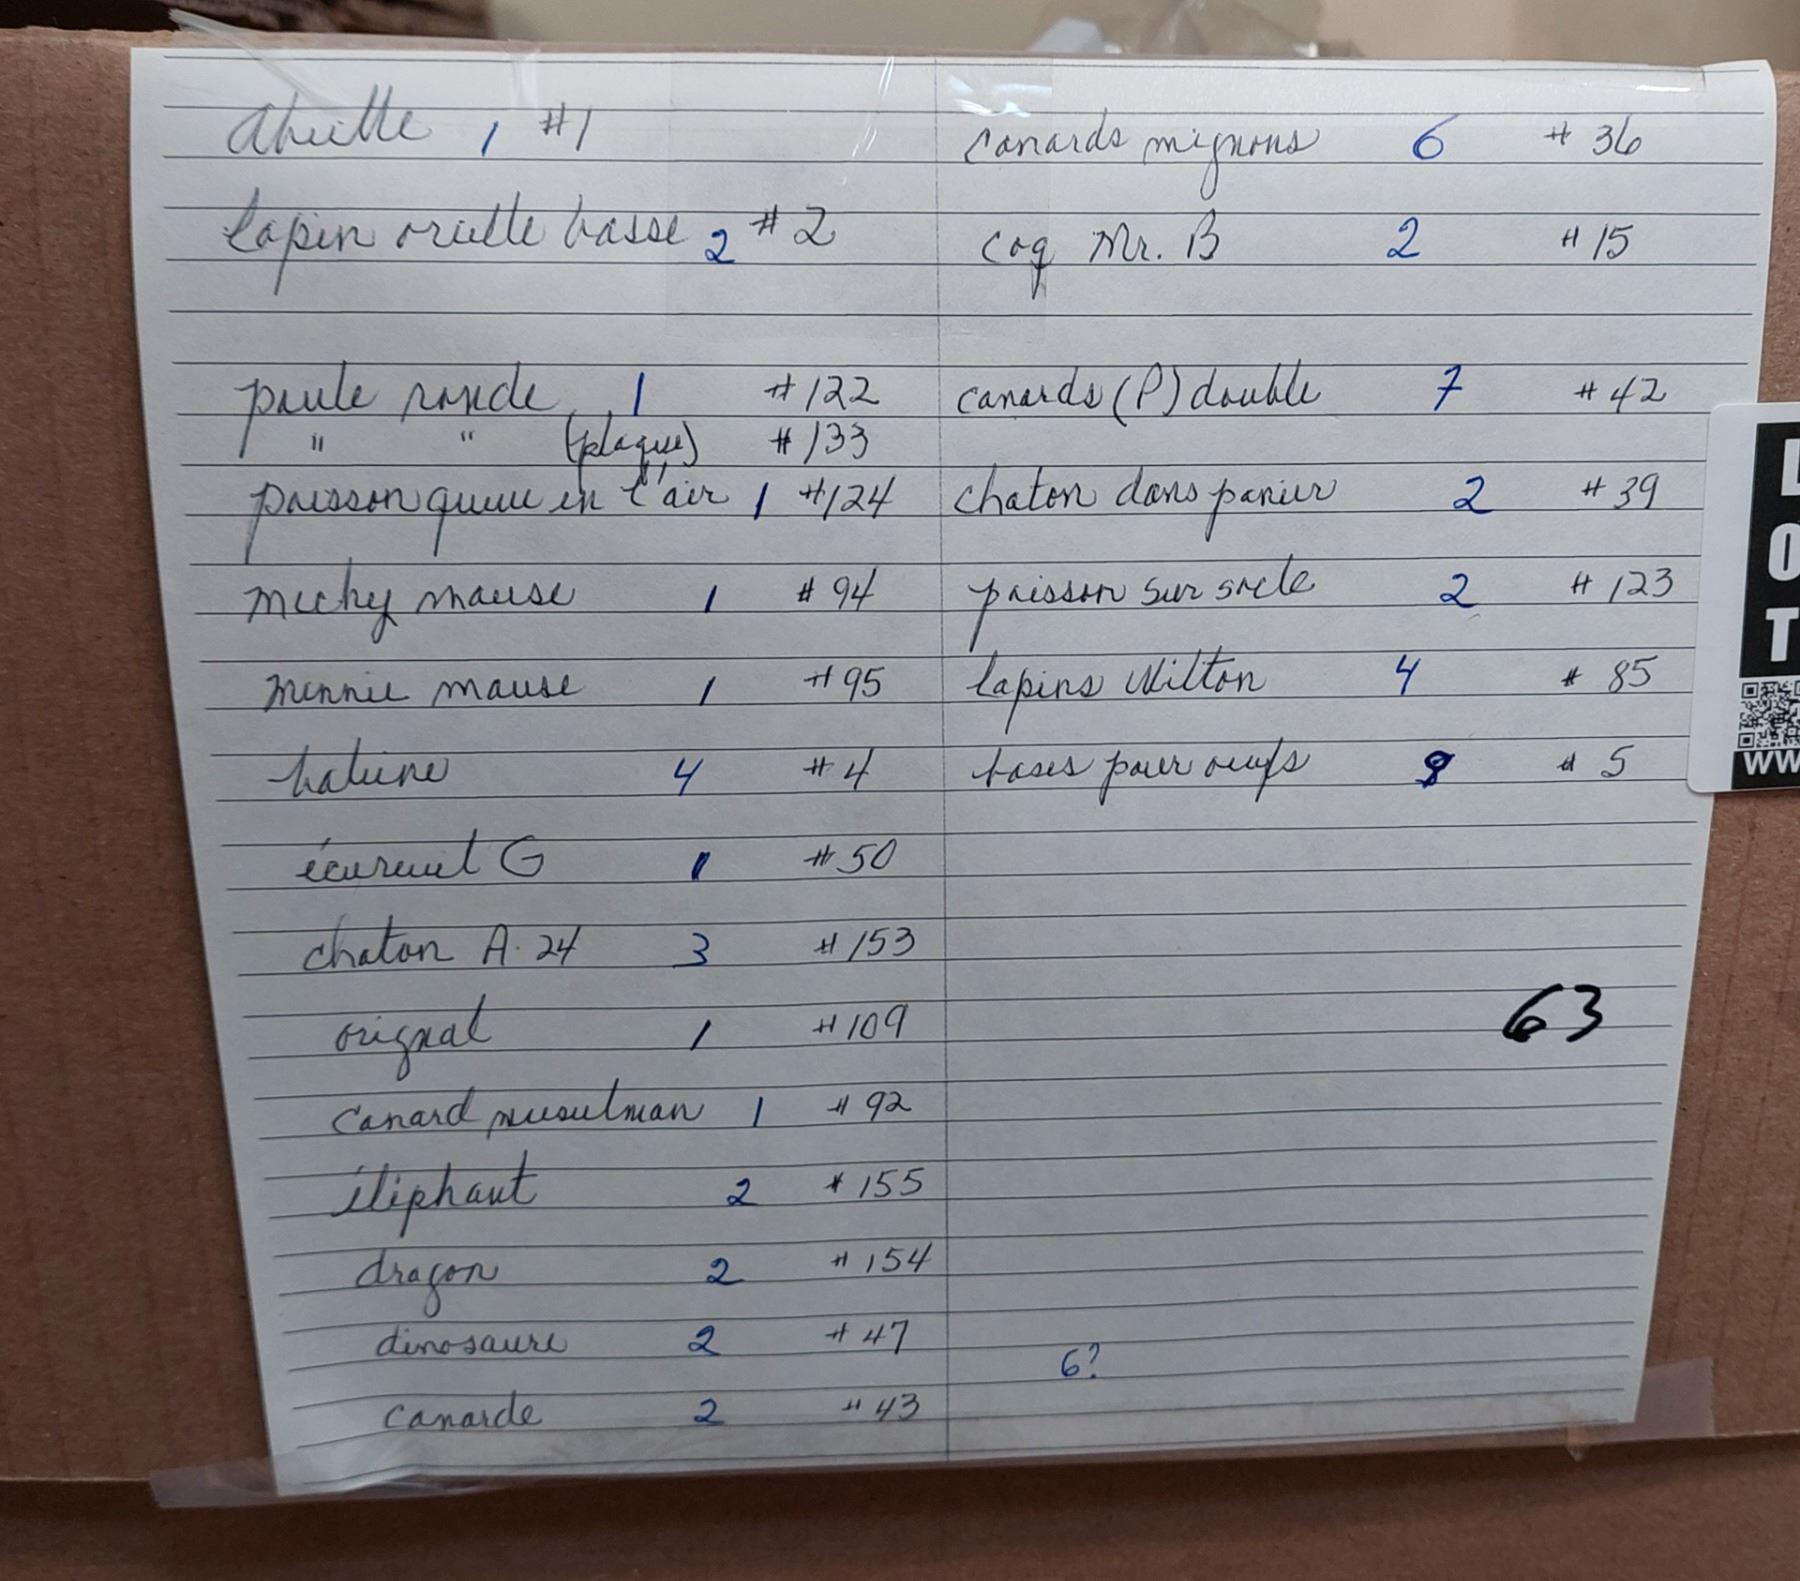 Abeille 1 #1
lapin oreille basse 2 #2
poule ronde 1 #122
" " (plaque) #133
poisson queue en l'air 1 #124
Micky mouse 1 #94
Minnie mouse 1 #95
baleine 4 #4
écureuil G 1 #50
chaton A-24 3 #153
orignal 1 #109
canard musulman 1 #92
éléphant 2 #155
dragon 2 #154
dinosaure 2 #47
canarde 2 #43
canards mignons 6 #36
coq Mr. B 2 #15
canards (P) double 7 #42
chaton dans panier 2 #39
poisson sur socle 2 #123
lapins Wilton 4 #85
bases pour oeufs #5
63
6?
L
O
T
WW